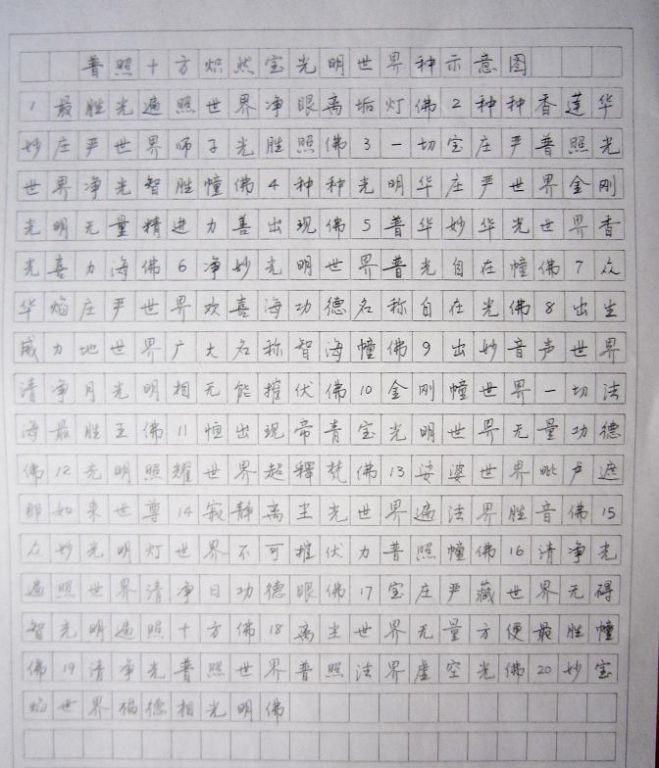 普照十方炽然宝光明世界种示意图
1最胜光遍照世界净眼离垢灯佛2种种香莲华
妙庄严世界师子光胜照佛3一切宝庄严普照光
世界净光智胜幢佛4种种光明华庄严世界金刚
光明无量精进力善出现佛5普华妙华光世界香
光喜力海佛6净妙光明世界普光自在幢佛7众
华焰庄严世界欢喜海功德名称自在光佛8出生
威力地世界广大名称智海幢佛9出妙音声世界
清净月光明相无能摧伏佛10金刚幢世界一切法
海最胜王佛11恒出现帝青宝光明世界无量功德
佛12光明照耀世界超释梵佛13娑婆世界毗卢遮
那如来世尊14寂静离尘光世界遍法界胜音佛15
众妙光明灯世界不可摧伏力普照幢佛16清净光
遍照世界清净日功德眼佛17宝庄严藏世界无碍
智光明遍照十方佛18离尘世界无量方便最胜幢
佛19清净光普照世界普照法界虚空光佛20妙宝
焰世界福德相光明佛